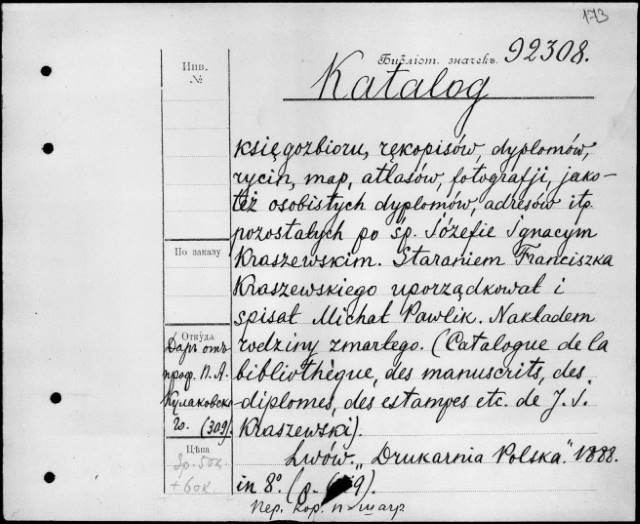 173
Библіот. значекъ 92308.
Инв.
№
Katalog
księgozbioru, rękopisów, dyplomów,
rycin, map, atlasów, fotografji, jako-
też osobistych dyplomów, adresów itp.
pozostałych po śp. Józefie Ignacym
Kraszewskim. Staraniem Franciszka
Kraszewskiego uporządkował i
spisał Michał Pawlik. Nakładem
rodziny zmarłego. (Catalogue de la
bibliothèque, des manuscrits, des
diplomes, des estampes etc. de J. I.
Kraszewski).
Lwów. „Drukarnia Polska". 1888.
in 8°. (p.
По заказу
Откуда
Даръ отъ
проф. П. А.
Кулаковск
го. (309).
Цѣна
+ 60к.
Пер. кор.